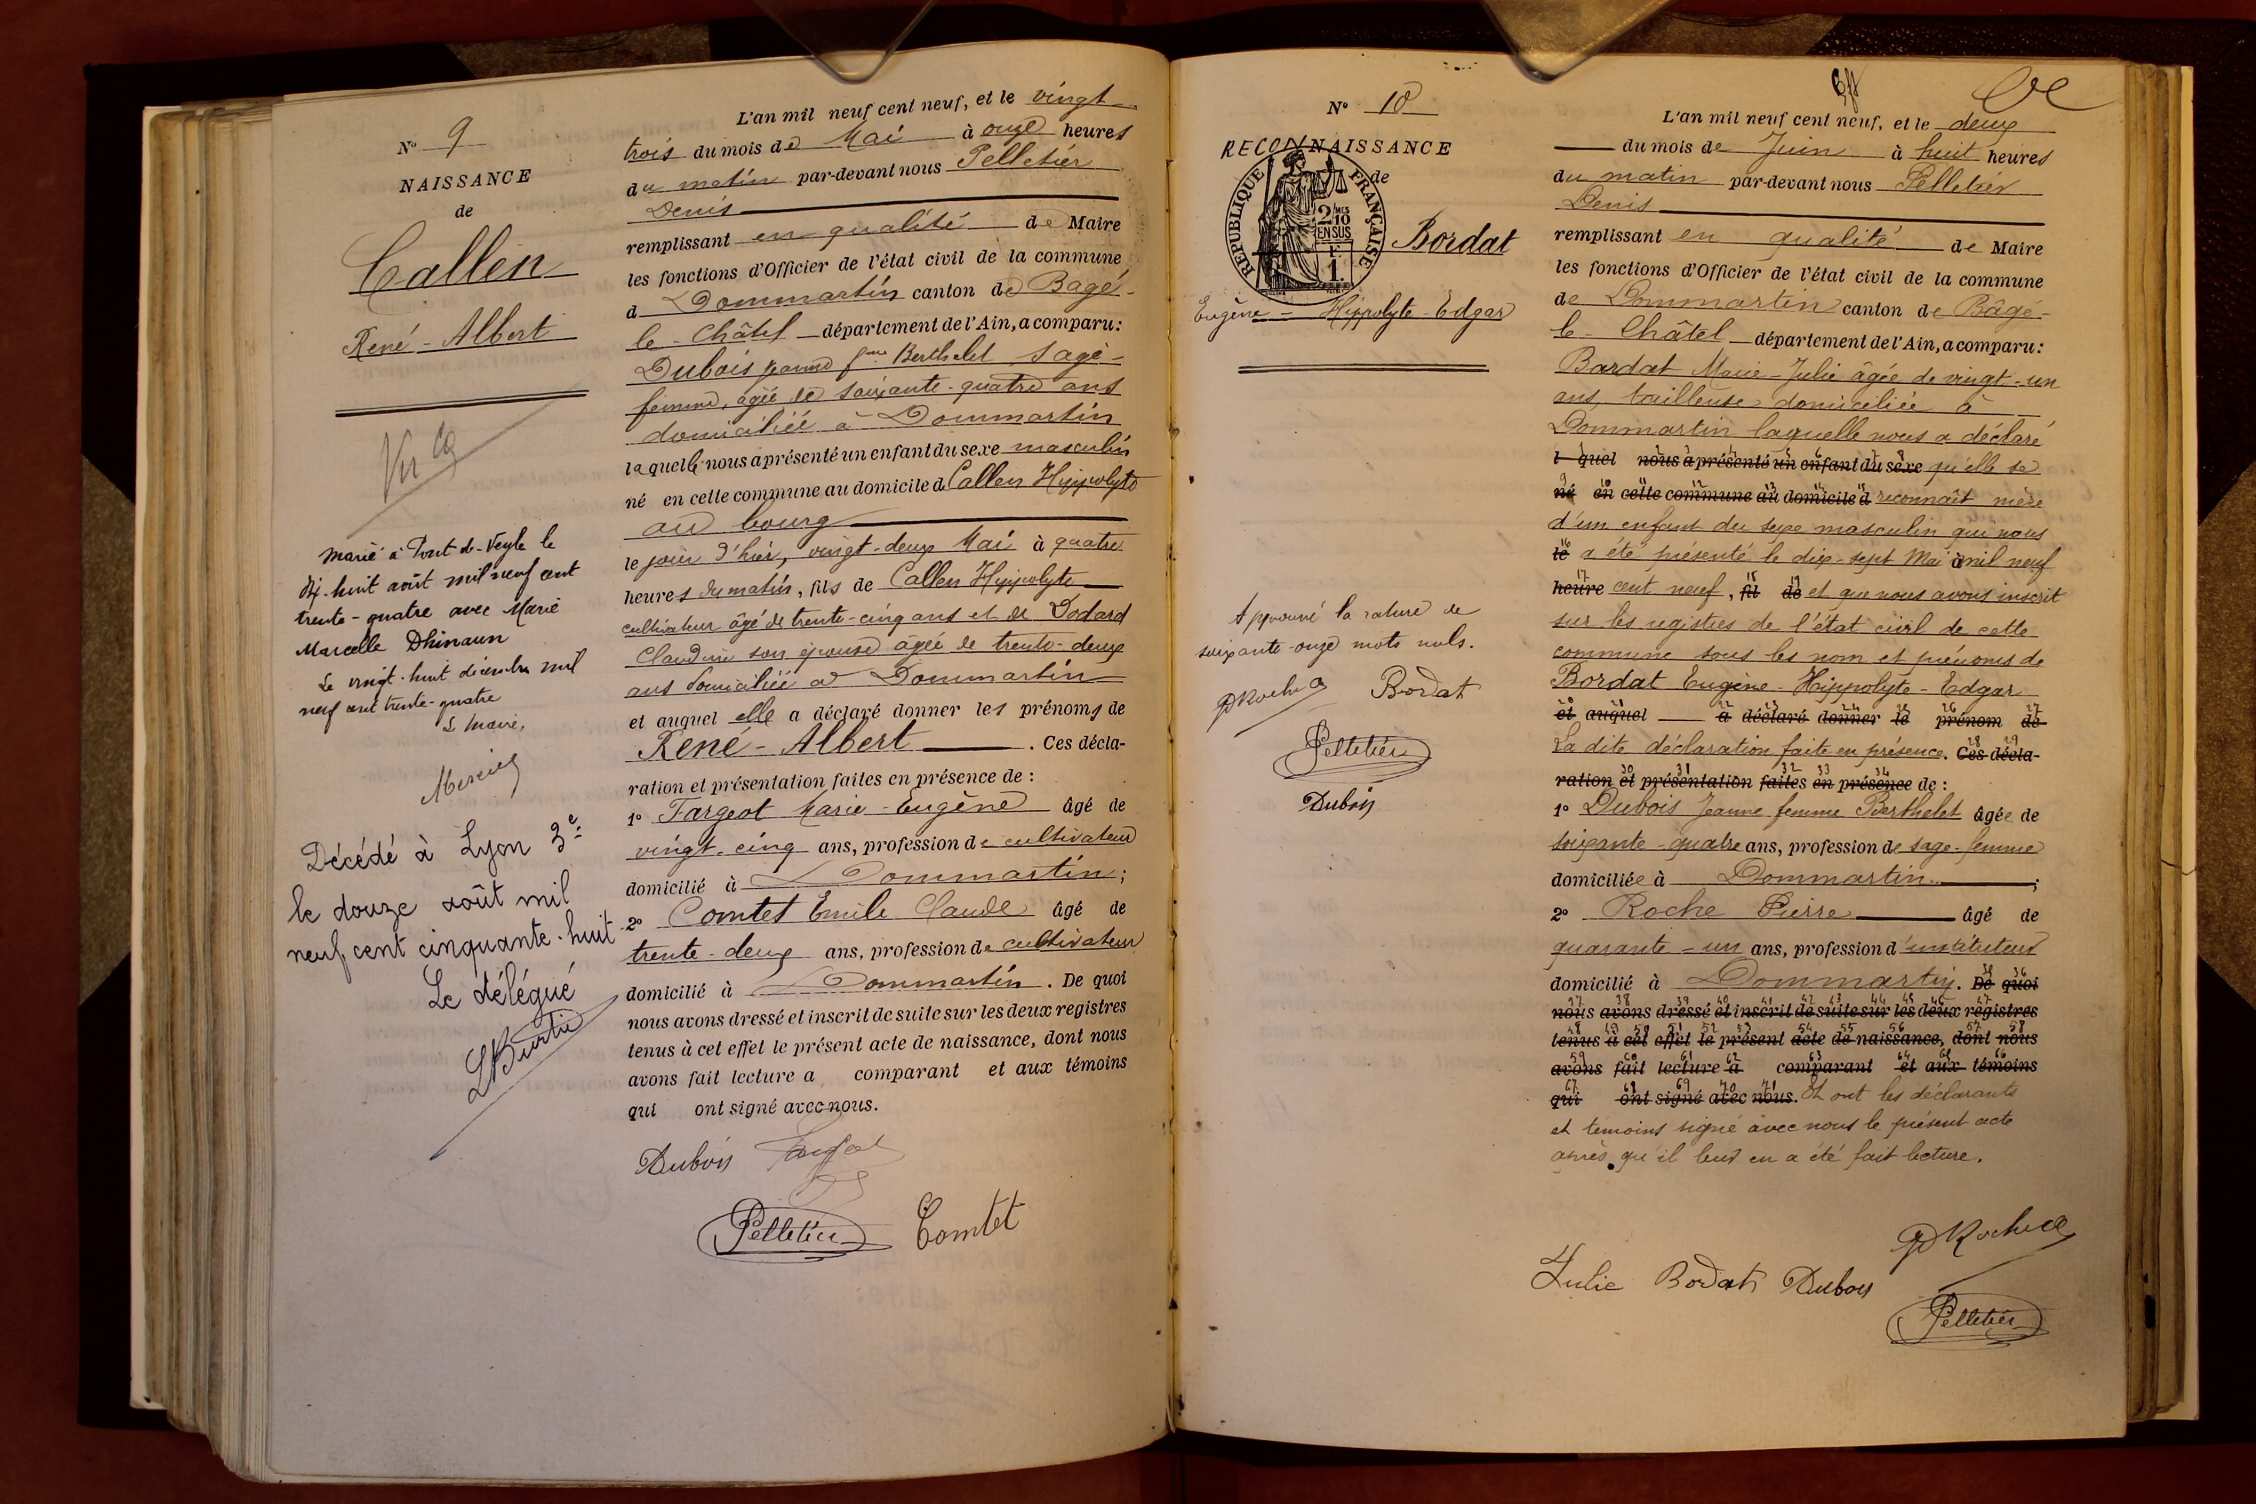 N° 9
NAISSANCE
de
Callen
René - Albert
Vu
Marié à Pont-de-Veyle le
dix-huit août mil neuf cent
trente-quatre avec Marie
Marcelle Dhinaun
Le vingt-huit décembre mil
neuf cent trente-quatre
Le Maire,
Mercier
Décédé à Lyon 3e
le douze août mil
neuf cent cinquante-huit
Le délégué
L'an mil neuf cent neuf, et le vingt-
trois du mois de Mai à onze heures
du matin par-devant nous Pelletier
Denis
remplissant en qualité de Maire
les fonctions d'Officier de l'état civil de la commune
d Dommartin canton de Bagé-
le-Châtel département de l'Ain, a comparu:
Dubois Jeanne fme Berthelet sage-
femme, âgée de soixante-quatre ans
domiciliée à Dommartin
laquelle nous a présenté un enfant du sexe masculin
né en cette commune au domicile d Callen Hippolyte
au bourg
le jour d'hier, vingt-deux Mai à quatre
heures du matin, fils de Callen Hippolyte
cultivateur âgé de trente-cinq ans et de Dodard
Claudine son épouse âgée de trente-deux
ans domiciliée à Dommartin
et auquel elle a déclaré donner les prénoms de
René-Albert . Ces décla-
ration et présentation faites en présence de :
1° Fargeot Marie-Eugène âgé de
vingt-cinq ans, profession de cultivateur
domicilié à Dommartin ;
2° Comtet Emile Claude âgé de
trente-deux ans, profession de cultivateur
domicilié à Dommartin. De quoi
nous avons dressé et inscrit de suite sur les deux registres
tenus à cet effet le présent acte de naissance, dont nous
avons fait lecture a comparant et aux témoins
qui ont signé avec nous.
Dubois Fargeot
Pelletier Comtet
N° 10
RECONNAISSANCE
de
REPUBLIQUE FRANÇAISE
2/10 MES
EN SUS
1 F.
Bordat
Eugène - Hippolyte - Edgar
Approuvé la rature de
soixante-onze mots nuls.
P Roche Bordat
Pelletier
Dubois
L'an mil neuf cent neuf, et le deux
du mois de Juin à huit heures
du matin par-devant nous Pelletier
Denis
remplissant en qualité de Maire
les fonctions d'Officier de l'état civil de la commune
de Dommartin canton de Bâgé-
le-Châtel département de l'Ain, a comparu:
Bordat Marie-Julie âgée de vingt-un
ans, tailleuse domiciliée à
Dommartin laquelle nous a déclaré
l quel nous a présenté un enfant du sexe qu'elle se
né en cette commune au domicile d reconnaît mère
d'un enfant du sexe masculin qui nous
le a été présenté le dix-sept Mai à mil neuf
heure cent neuf, fil de et que nous avons inscrit
sur les registres de l'état civil de cette
commune sous les nom et prénoms de
Bordat Eugène-Hippolyte-Edgar
et auquel a déclaré donner le prénom de
La dite déclaration faite en présence. Ces décla-
ration et présentation faites en présence de :
1° Dubois Jeanne femme Berthelet âgée de
soixante-quatre ans, profession de sage-femme
domiciliée à Dommartin ;
2° Roche Pierre âgé de
quarante-un ans, profession d'instituteur
domicilié à Dommartin. De quoi
nous avons dressé et inscrit de suite sur les deux registres
tenus à cet effet le présent acte de naissance, dont nous
avons fait lecture a comparant et aux témoins
qui ont signé avec nous. Et ont les déclarants
et témoins signé avec nous le présent acte
après qu'il leur en a été fait lecture.
P Roche
Julie Bordat Dubois
Pelletier